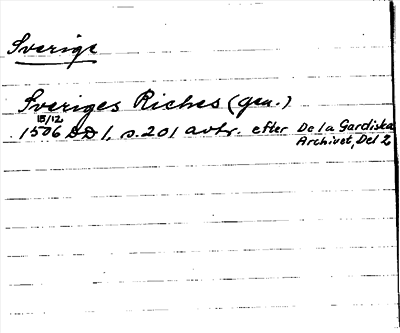 Sverige
Sveriges Riches (gen.)
15/12
1506 DD 1, s. 201 avtr. efter De la Gardiska
Archivet, Del 2